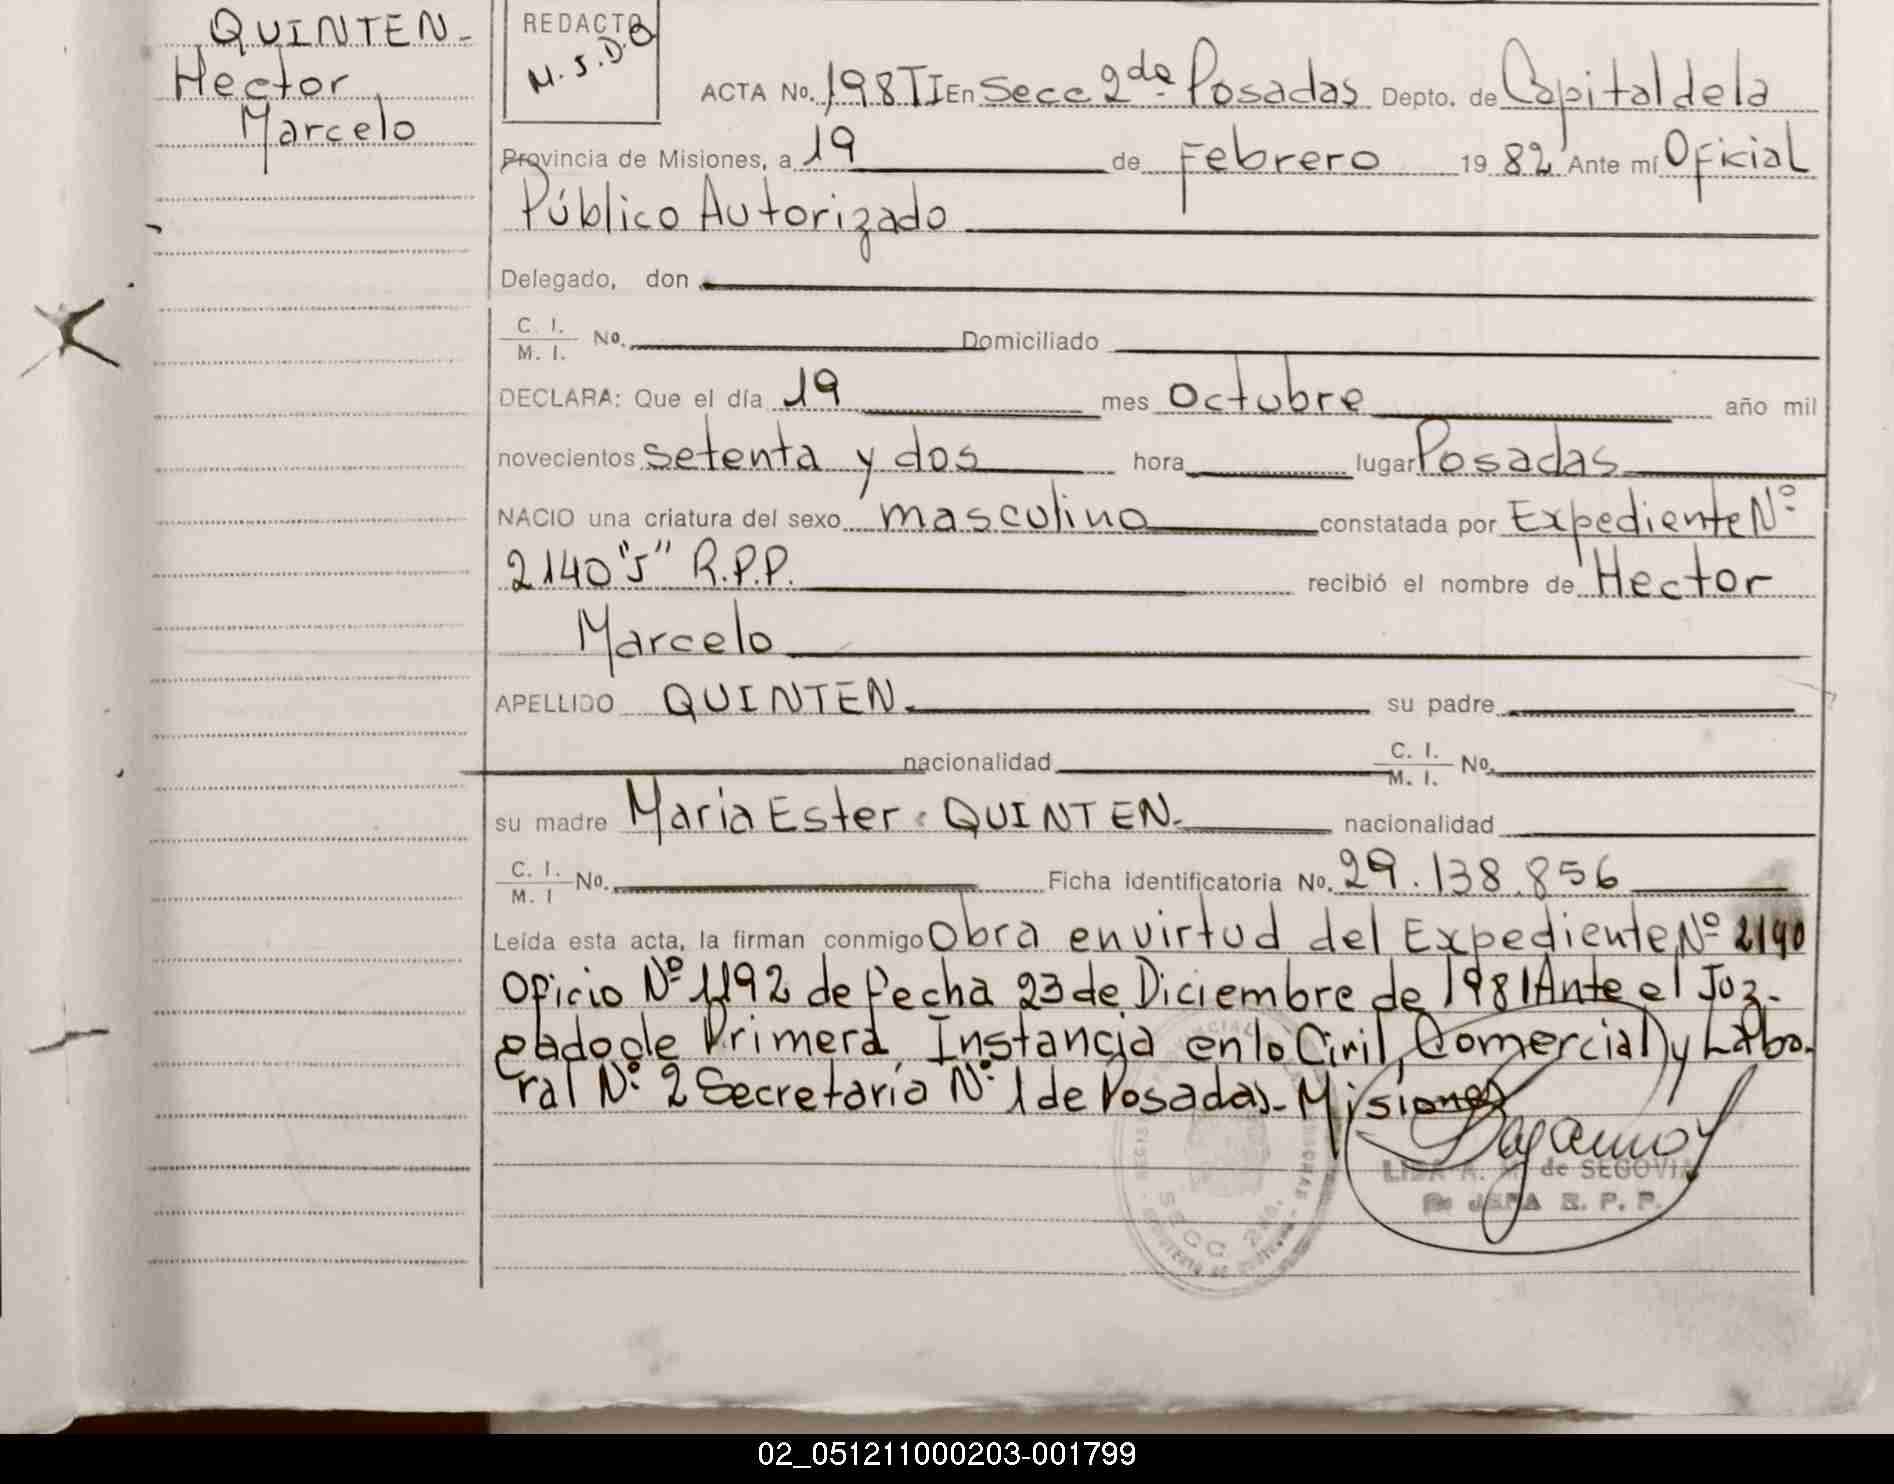 QUINTEN-
Hector
Marcelo
REDACTO
M.S.D.B
ACTA No. 198 TI En Secc 2da Posadas Depto. de Capital de la
Provincia de Misiones, a 19 de Febrero 1982 Ante mí Oficial
Público Autorizado
Delegado, don
C. I. / M. I. No. Domiciliado
DECLARA: Que el día 19 mes Octubre año mil
novecientos setenta y dos hora lugar Posadas
NACIO una criatura del sexo masculino constatada por Expediente Nº
2140 "J" R.P.P. recibió el nombre de Hector
Marcelo
APELLIDO QUINTEN. su padre
nacionalidad C. I. / M. I. No.
su madre Maria Ester QUINTEN- nacionalidad
C. I. / M. I No. Ficha identificatoria No. 29.138.856
Leída esta acta, la firman conmigo Obra en virtud del Expediente Nº 2140
Oficio Nº 1192 de fecha 23 de Diciembre de 1981 Ante el Juz-
gado de Primera Instancia en lo Civil, Comercial y Labo-
ral Nº 2 Secretaría Nº 1 de Posadas- Misiones
de SEGOVIA
JEFA R. P. P.
SECC 2da.
02_051211000203-001799